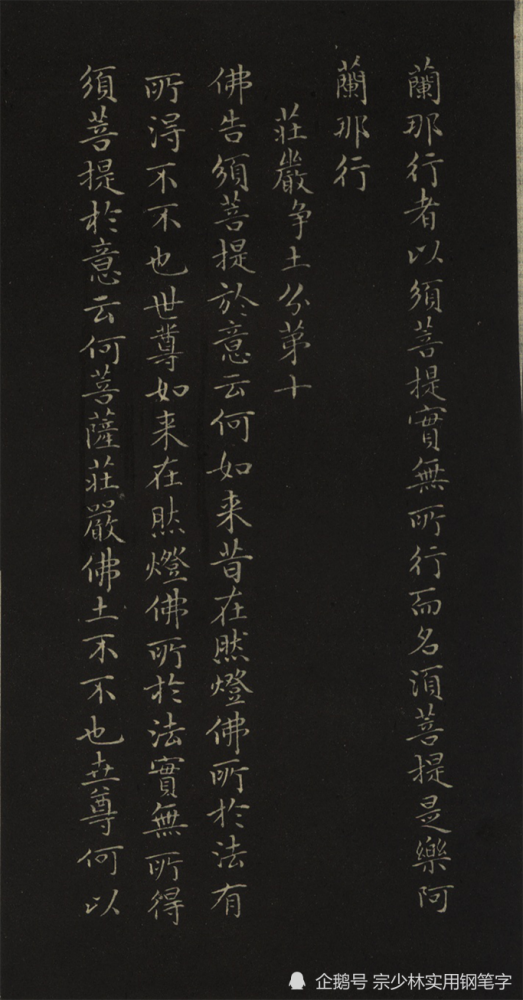 蘭那行者以須菩提實無所行而名須菩提是樂阿
蘭那行
莊嚴争土分第十
佛告須菩提於意云何如来昔在然燈佛所於法有
所得不不也世尊如来在然燈佛所於法實無所得
須菩提於意云何菩薩莊嚴佛土不不也世尊何以
企鹅号 宗少林实用钢笔字